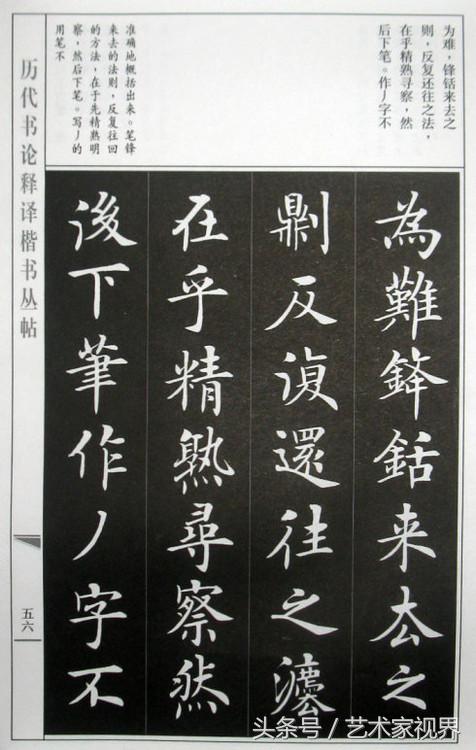 为难,锋铦来去之
则,反复还往之法,
在乎精熟寻察,然
后下笔。作丿字不
准确地概括出来。笔锋
来去的法则,反复往回
的方法,在于先精熟明
察,然后下笔。写丿的
用笔不
為難鋒銛来去之
劓反復還往之灋
在乎精熟尋察然
後下筆作丿字不
历代书论释译楷书丛帖
五六
头条号/艺术家视界